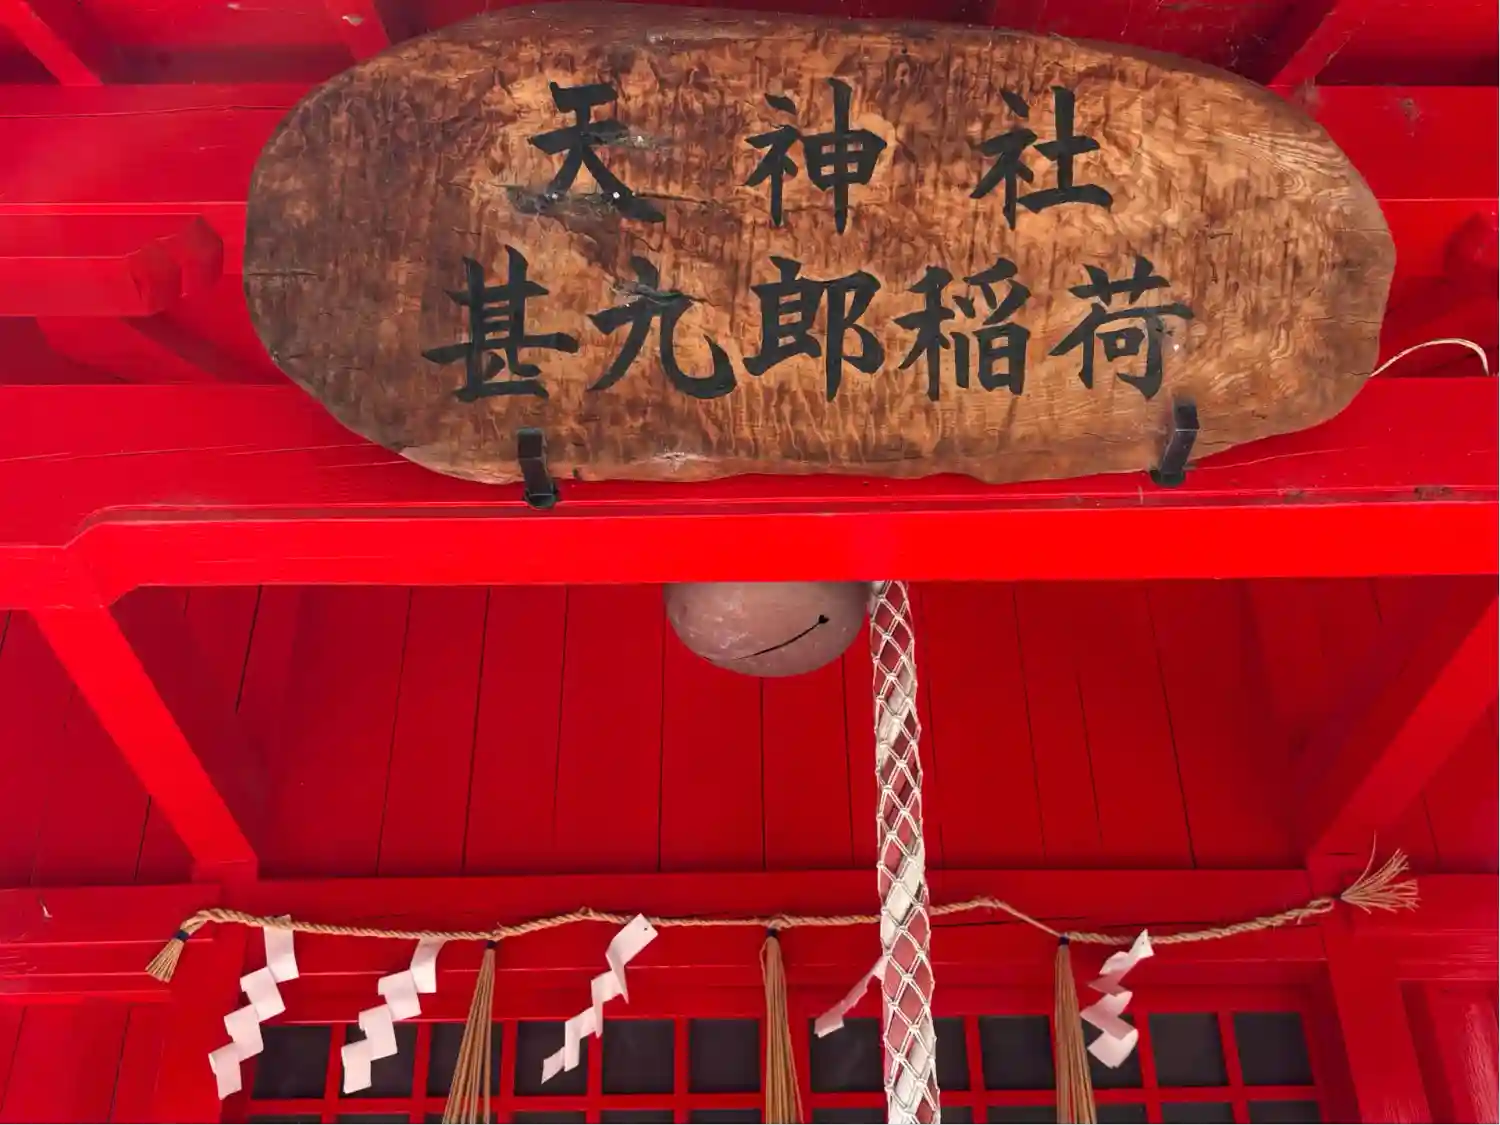 天神社
甚九郎稲荷